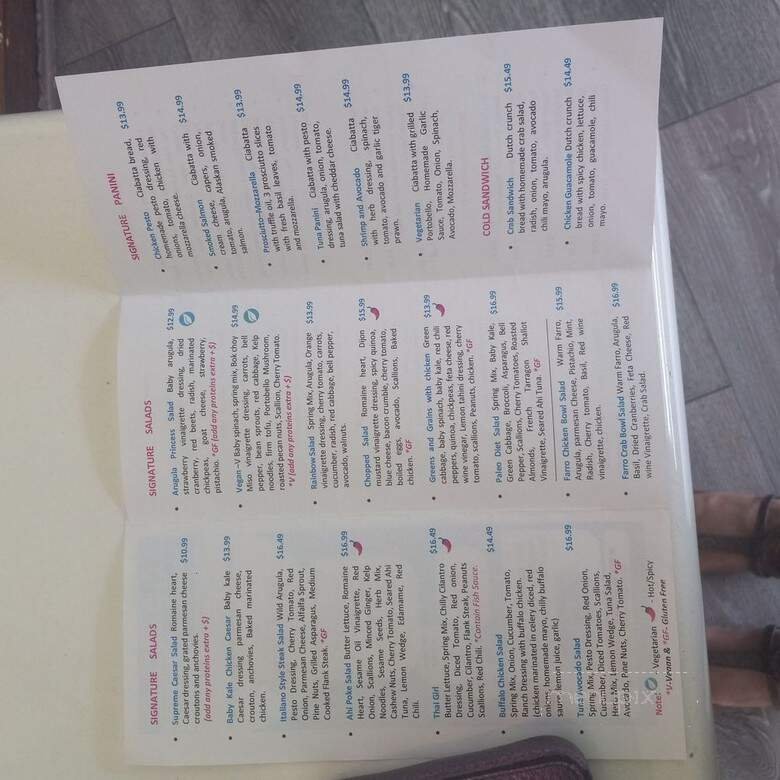 SIGNATURE SALADS
• Supreme Caesar Salad Romaine heart, $10.99
Caesar dressing, grated parmesan cheese
croutons and anchovies.
(add any proteins extra + $)
• Baby Kale Chicken Caesar Baby kale $13.99
Caesar dressing parmesan cheese,
croutons anchovies, Baked marinated
chicken.
• Italiano Style Steak Salad Wild Arugula, $16.49
Pesto Dressing, Cherry Tomato, Red
Onion, Parmesan Cheese, Alfalfa Sprout,
Pine Nuts, Grilled Asparagus, Medium
Cooked Flank Steak. *GF
• Ahi Poke Salad Butter Lettuce, Romaine $16.99
Heart, Sesame Oil Vinaigrette, Red
Onion, Scallions, Minced Ginger, Kelp
Noodles, Sesame Seeds, Herb Mix,
Cashew Nuts, Cherry Tomato, Seared Ahi
Tuna, Lemon Wedge, Edamame, Red
Chili.
• Thai Girl $16.49
Butter Lettuce, Spring Mix, Chilly Cilantro
Dressing, Diced Tomato, Red onion,
Cucumber, Cilantro, Flank Steak, Peanuts
Scallions, Red Chili. *Contain Fish Sauce.
• Buffalo Chicken Salad $14.49
Spring Mix, Onion, Cucumber, Tomato,
Ranch Dressing with buffalo chicken.
(chicken marinated in celery diced, red
onion, homemade mayo, chilly buffalo
sauce, lemon juice, garlic)
• Tuna Avocado Salad $16.99
Spring Mix, Pesto Dressing, Red Onion,
Cucumber, Diced Tomatoes, Scallions,
Herb Mix, Lemon Wedge, Tuna Salad,
Avocado, Pine Nuts, Cherry Tomato. *GF
Note: Vegetarian - Hot/Spicy
*V- Vegan & *GF- Gluten Free
SIGNATURE SALADS
• Arugula Princess Salad Baby arugula, $12.99
strawberry vinaigrette dressing, dried
cranberry, red beets, radish, marinated
chickpeas, goat cheese, strawberry,
pistachio. *GF (add any proteins extra + $)
• Vegan –V Baby spinach, spring mix, Bok choy $14.99
Miso vinaigrette dressing, carrots, bell
pepper, bean sprouts, red cabbage, Kelp
noodles, firm tofu, Portobello Mushroom,
roasted pecan nuts, Scallion, Cherry Tomato.
*V (add any proteins extra + $)
• Rainbow Salad Spring Mix, Arugula, Orange $13.99
vinaigrette dressing, cherry tomato, carrots,
cucumber, radish, red cabbage, bell pepper,
avocado, walnuts.
• Chopped Salad Romaine heart, Dijon $15.99
mustard vinaigrette dressing, spicy quinoa,
blue cheese, bacon crumble, cherry tomato,
boiled eggs, avocado, Scallions, Baked
chicken. *GF
• Greens and Grains with chicken Green $13.99
cabbage, baby spinach, baby kale, red chili
peppers, quinoa, chickpeas, feta cheese, red
wine vinegar, Lemon tahini dressing, cherry
tomato, scallions, Peanuts, chicken. *GF
• Paleo Diet Salad Spring Mix, Baby Kale, $16.99
Green Cabbage, Broccoli, Asparagus, Bell
Pepper, Scallions, Cherry Tomatoes, Roasted
Almonds, French Tarragon Shallot
Vinaigrette, Seared Ahi Tuna. *GF
• Farro Chicken Bowl Salad Warm Farro, $15.99
Arugula, parmesan Cheese, Pistachio, Mint,
Radish, Cherry tomato, Basil, Red wine
vinaigrette, chicken.
• Farro Crab Bowl Salad Warm Farro, Arugula, $16.99
Basil, Dried Cranberries, Feta Cheese, Red
wine Vinaigrette, Crab Salad.
SIGNATURE PANINI
• Chicken Pesto Ciabatta bread, $13.99
homemade pesto dressing, red
onions, tomato, pesto chicken with
mozzarella cheese.
• Smoked Salmon Ciabatta with $14.99
cream cheese, capers, onion,
tomato, arugula, Alaskan smoked
salmon.
• Prosciutto-Mozzarella Ciabatta $13.99
with truffle oil, 3 prosciutto slices
with fresh basil leaves, tomato
and mozzarella.
• Tuna Panini Ciabatta with pesto $14.99
dressing, arugula, onion, tomato,
tuna salad with cheddar cheese.
• Shrimp and Avocado Ciabatta $14.99
with herb dressing, spinach,
tomato, avocado and garlic tiger
prawn.
• Vegetarian Ciabatta with grilled $13.99
Portobello, Homemade Garlic
Sauce, Tomato, Onion, Spinach,
Avocado, Mozzarella.
COLD SANDWICH
• Crab Sandwich Dutch crunch $15.49
bread with homemade crab salad,
radish, onion, tomato, avocado
chili mayo, arugula.
• Chicken Guacamole Dutch crunch $14.49
bread with spicy chicken, lettuce,
onion, tomato, guacamole, chili
mayo.